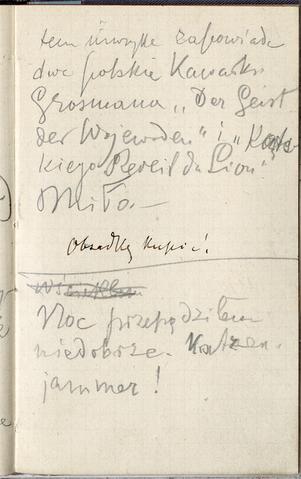 tem ünwytke zapowiada
dwa polskie Kawałki
Grosmana „Der Geist
des Wojewoden" i „Kątskiego
Reveil du Lion".
Miło.—
Obsadkę kupić!
Noc przepędziłem
niedobrze. Katzen-
jammer!